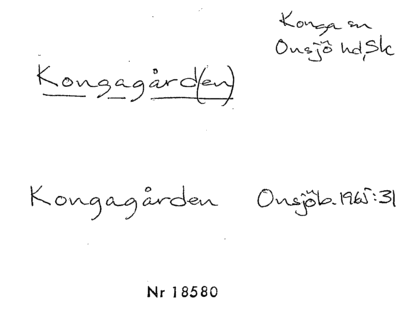 Konga sn
Onsjö hd, Sk
Kongagård(en)
Kongagården Onsjöb. 1965:31
Nr 18580